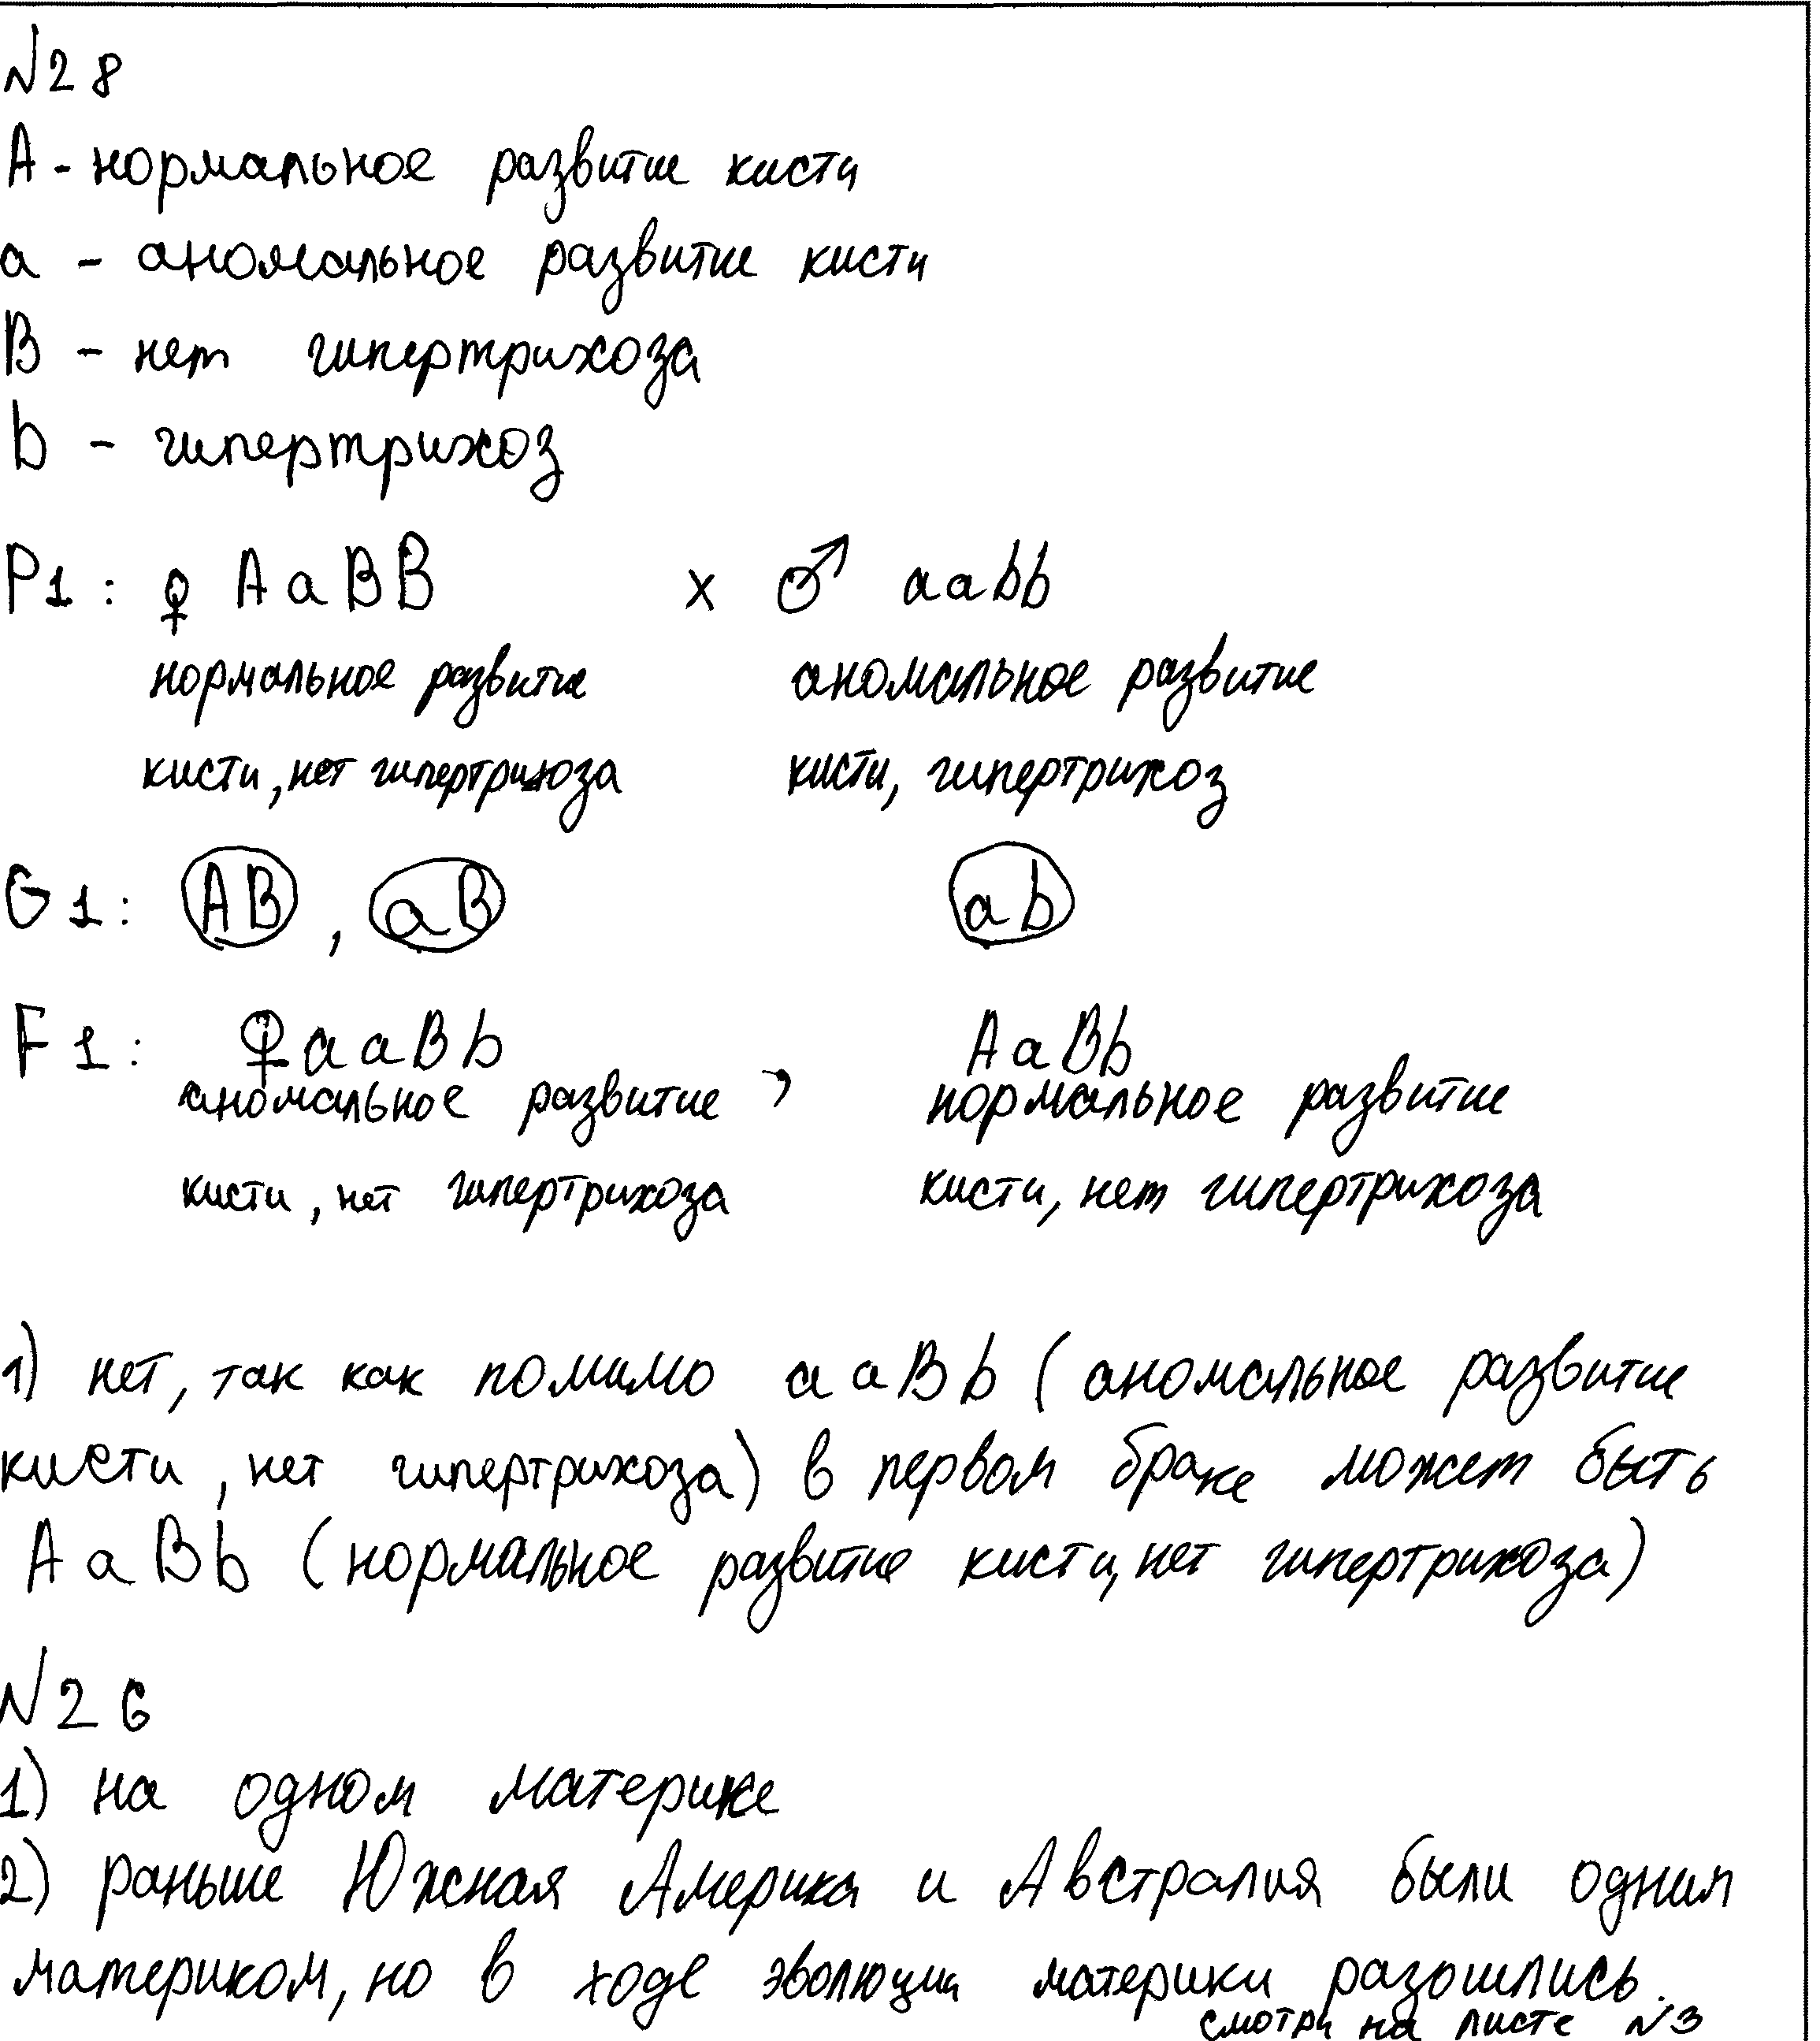 №28
A - нормальное развитие кисти
a - аномальное развитие кисти
B - нет гипертрихоза
b - гипертрихоз
P1: ♀ AaBB x ♂ aabb
нормальное развитие аномальное развитие
кисти, нет гипертрихоза кисти, гипертрихоз
G1: AB, aB ab
F1: ♀ aaBb, AaBb
аномальное развитие нормальное развитие
кисти, нет гипертрихоза кисти, нет гипертрихоза
1) нет, так как помимо aaBb (аномальное развитие
кисти, нет гипертрихоза) в первом браке может быть
AaBb (нормальное развитие кисти, нет гипертрихоза)
№26
1) на одном материке
2) раньше Южная Америка и Австралия были одним
материком, но в ходе эволюции материки разошлись.
смотри на листе №3